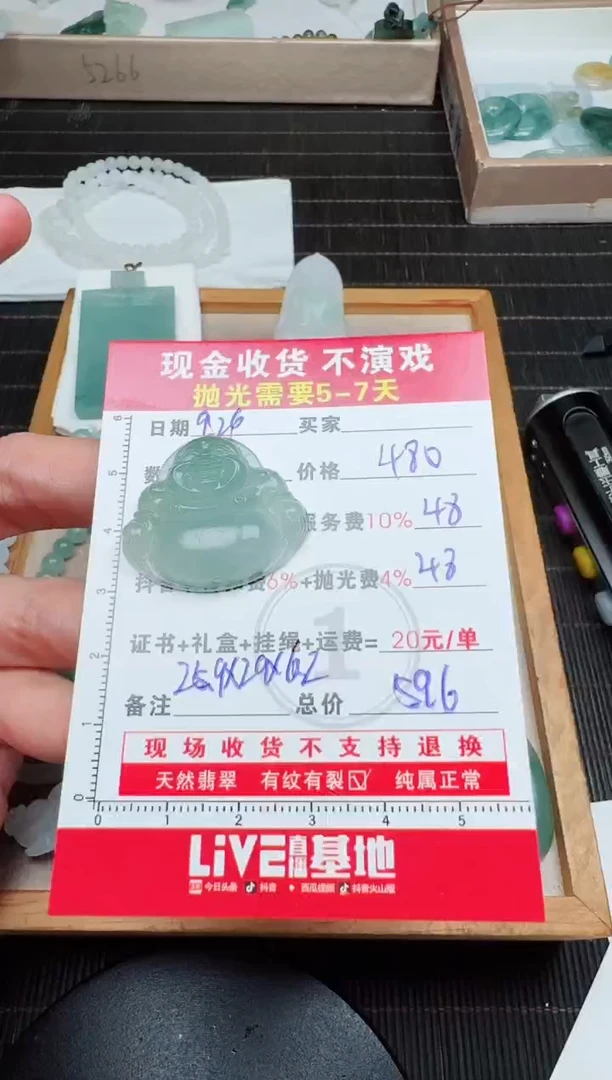 5266
现金收货 不演戏
抛光需要5-7天
日期 9.26 买家
价格 480
服务费10% 48
6%+抛光费4% 48
证书+礼盒+挂绳+运费= 20元/单
1
25.9X29X6.2
备注 总价 596
现场收货不支持退换
天然翡翠 有纹有裂☑ 纯属正常
6
5
4
3
2
1
0
0 1 2 3 4 5
LiVE直播基地
今日头条 抖音 西瓜视频 抖音火山版